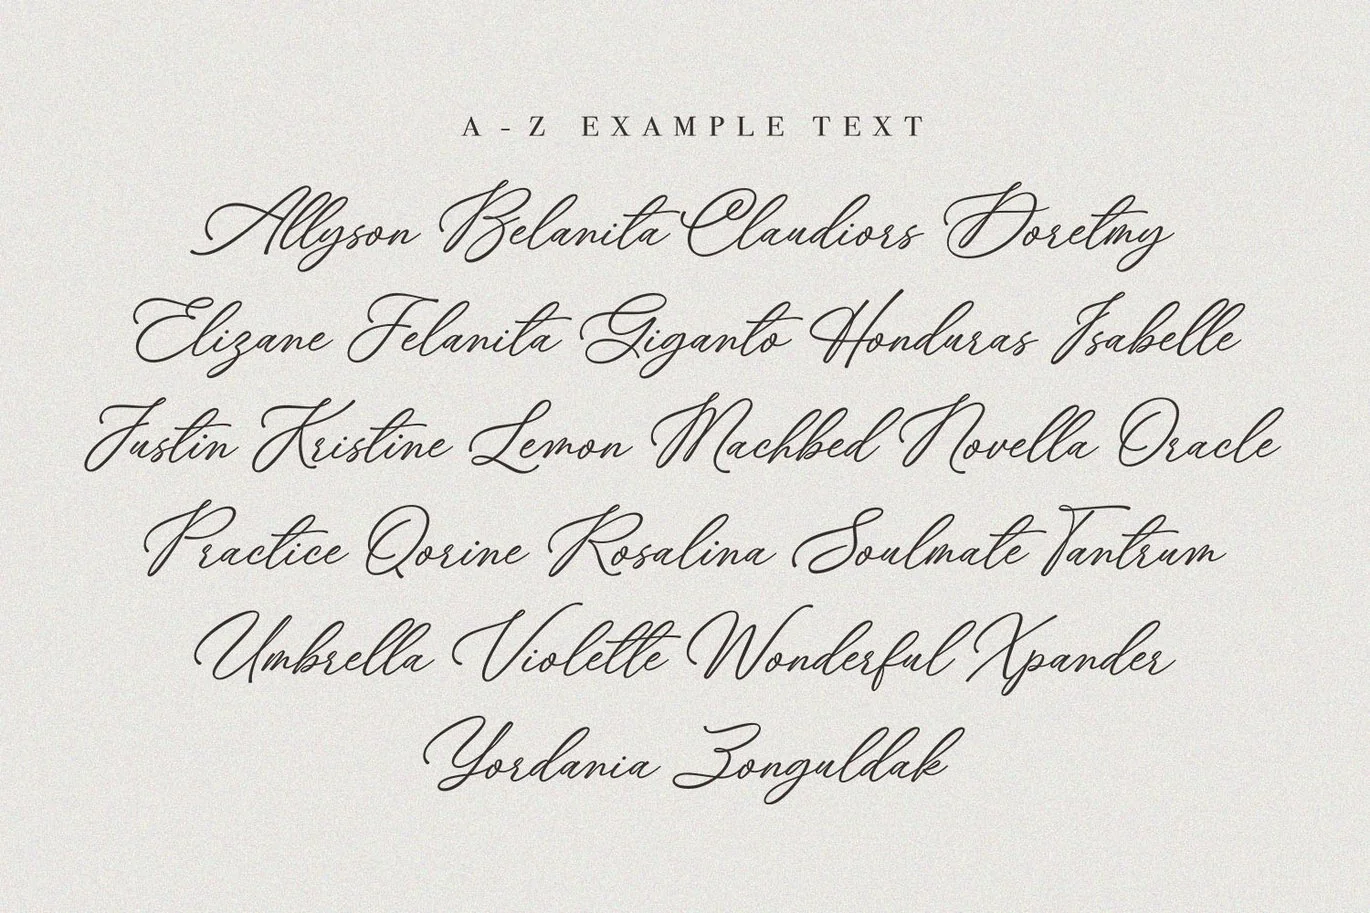 A - Z EXAMPLE TEXT
Allyson Belanita Claudiors Doretmy
Elizane Felanita Giganto Honduras Isabelle
Justin Kristine Lemon Machbed Novella Oracle
Practice Qorine Rosalina Soulmate Tantrum
Umbrella Violette Wonderful Xpander
Yordania Zonguldak